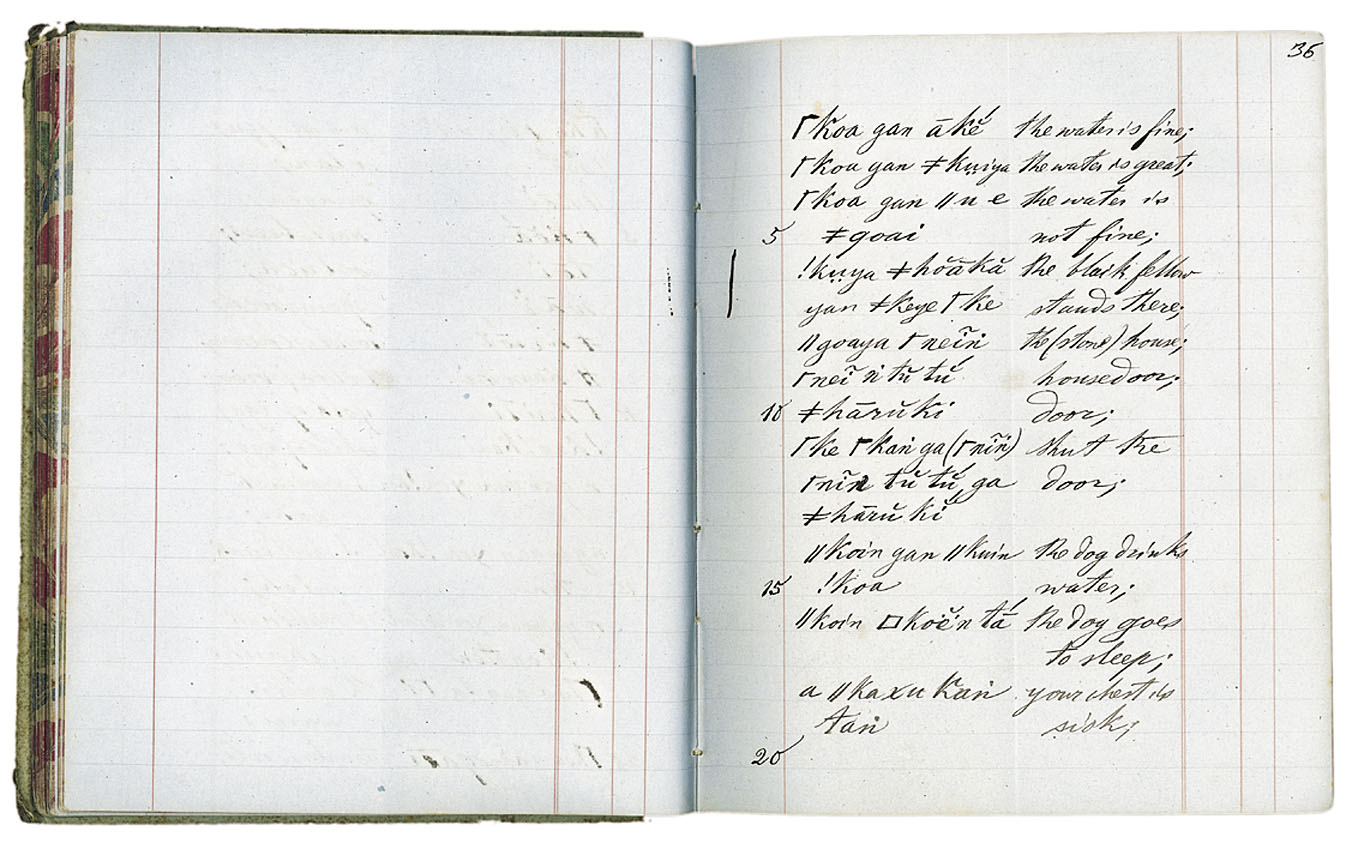 36
ꞁkoa gan ākĕ́ the water is fine;
ꞁkoa gan ǂkụiya the water is great;
ꞁkoa gan ǁu e the water is
5 ǂgoai not fine;
!kụya ǂhŏākă the black fellow
yan ǂkeye ꞁke stands there;
ǁgoaya ꞁneĩṅ the (stone) house;
ꞁneĩ ṅ tŭ tú housedoor;
10 ǂhārŭki door;
ꞁke ꞁkaṅ ga (ꞁnĩṅ) shut the
ꞁnĩn tŭ tú, ga door;
ǂhārŭ kĭ
ǁkoin gan ǁkuin the dog drinks
15 !koa water;
ǁkoin ▱koĕ́n tā́ the dog goes
to sleep;
a ǁkaxu kaṅ your chest is
taṅ sick;
20